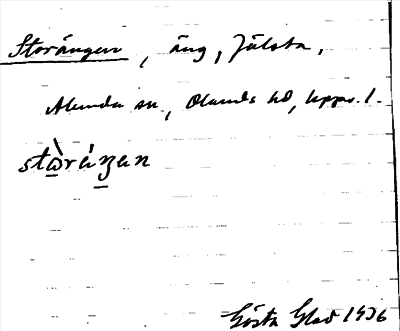 Storängen, äng, Jälsta,
Alunda sn, Olands hd, Upps. l.
stὼráŋan
Gösta Glad 1936